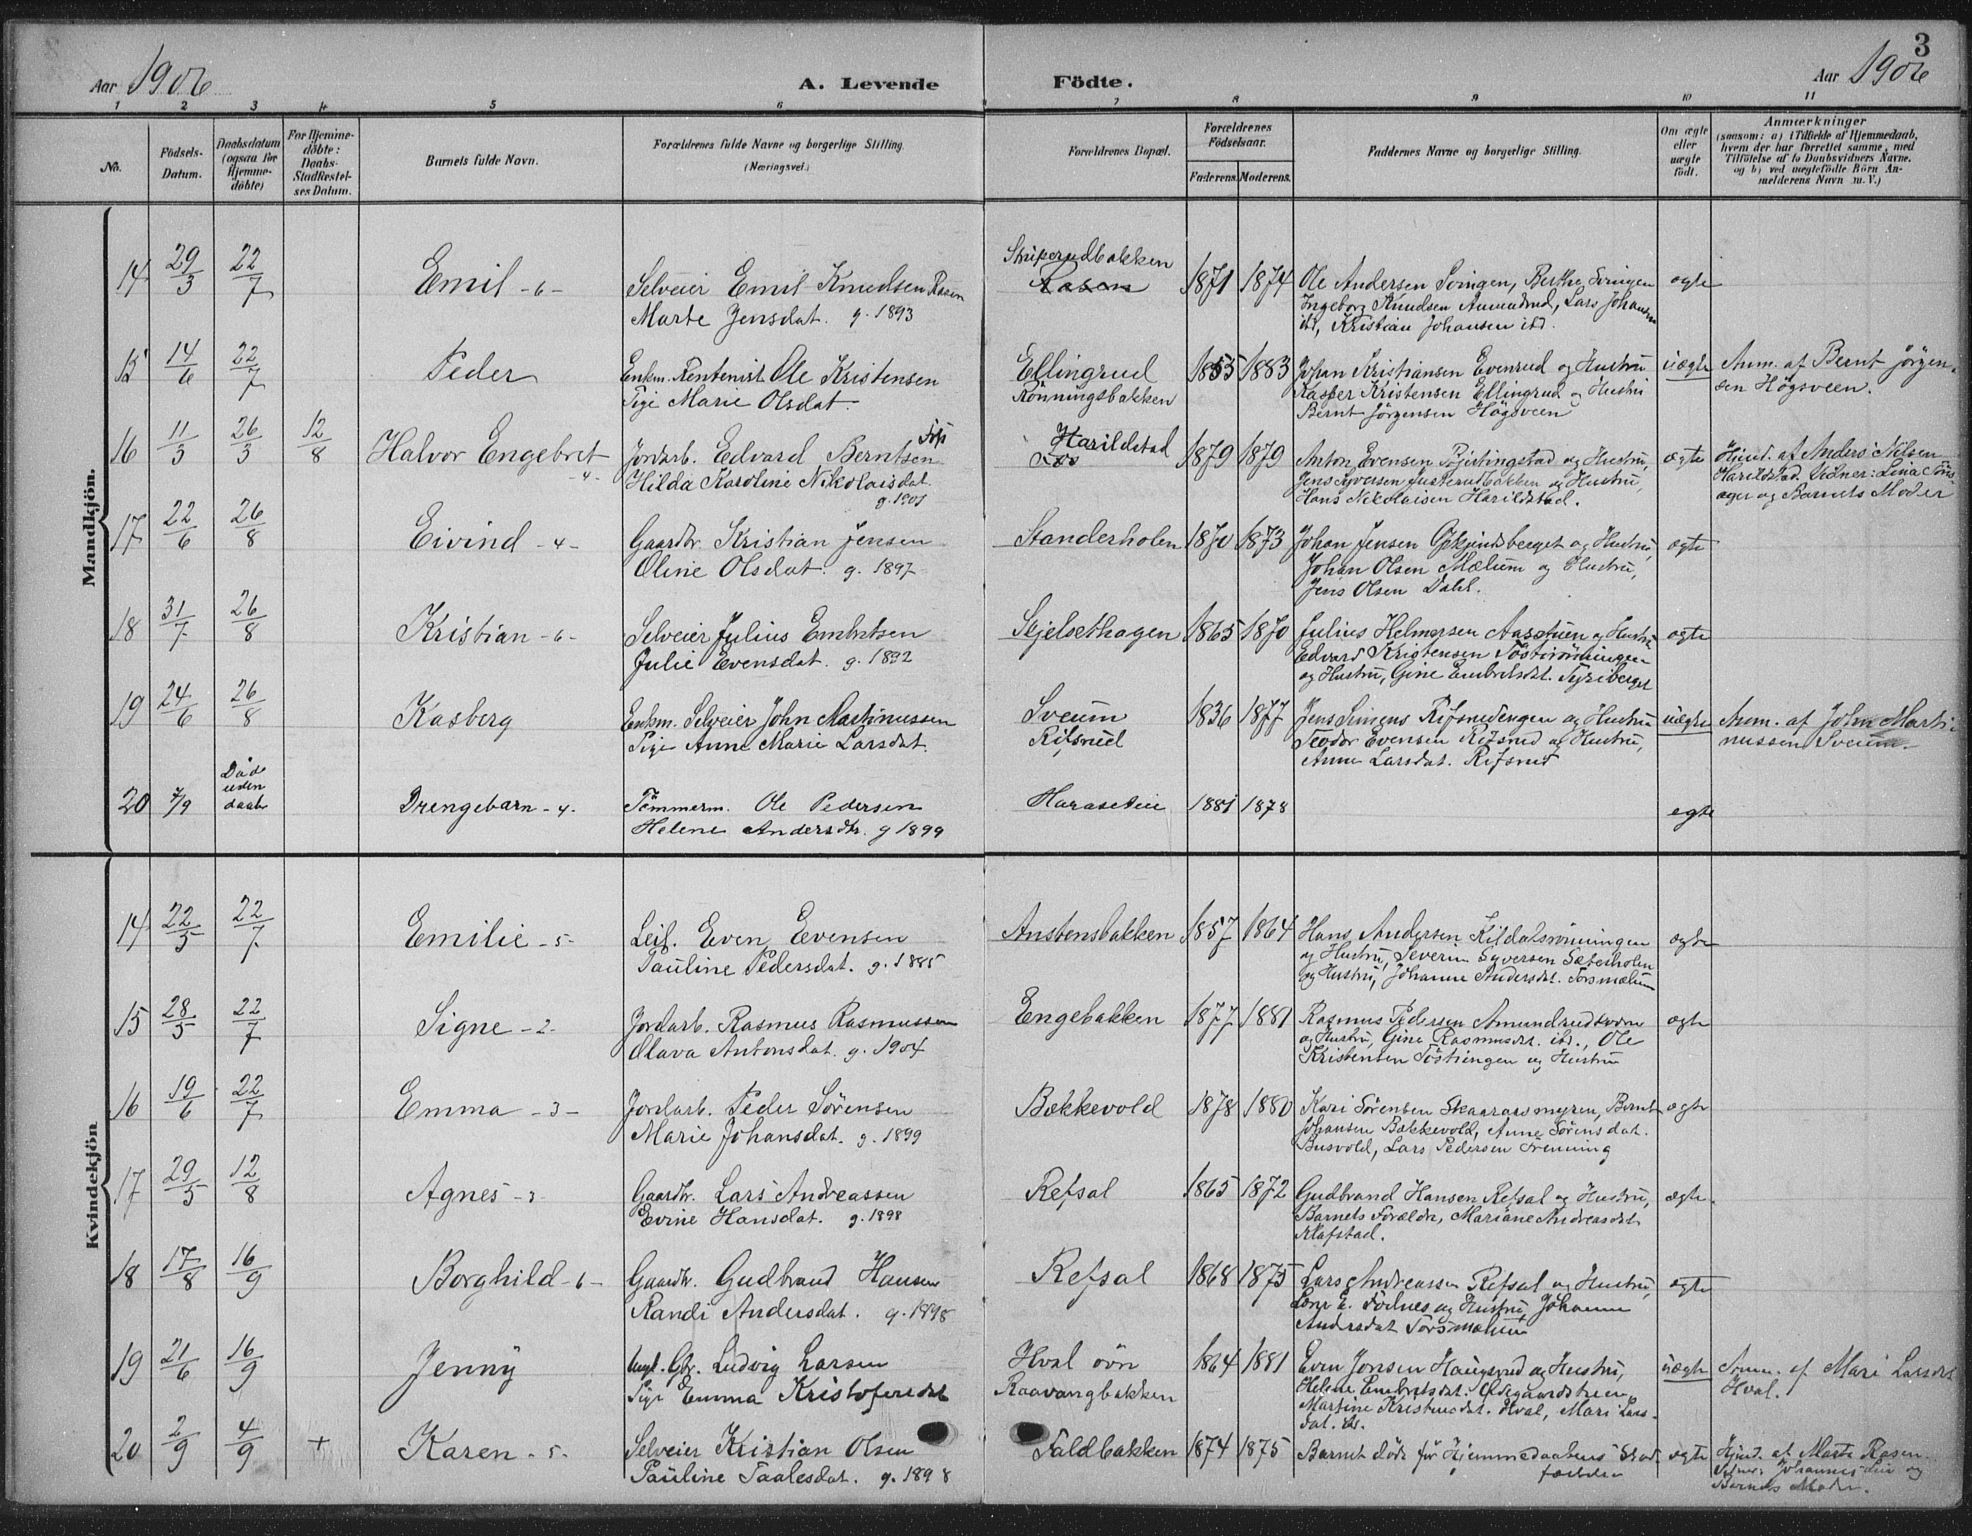 3
Aar 1906 A. Levende Födte. Aar 1906
1 2 3 4 5 6 7 8 9 10 11
No.
Födsels-Datum.
Daabsdatum (ogsaa for Hjemme-döbte)
For Hjemme-döbte: Daabs-Stadfæstel-ses Datum.
Barnets fulde Navn.
Forældrenes fulde Navne og borgerlige Stilling.
(Næringsvei.)
Forældrenes Bopæl.
Forældrenes Födselsaar.
Faderens. Moderens.
Faddernes Navne og borgerlige Stilling.
Om ægte eller uægte födt.
Anmærkninger
(saasom: a) i Tilfælde af Hjemmedaab, hvem der har forrettet samme, med Tilföielse af to Daabsvidners Navne. og b) ved uægtefödte Börn An-melderens Navn m. V.)
Mandkjön.
14 29/3 22/7 Emil - 6 - Selveier Emil Knudsen Rasen Skiperudbakken 1871 1874 Ole Andersen Svingen, Berthe Svingen ægte
Marte Jensdat. g. 1893 Rasen Ingeborg Knudsen Amundrud, Lars Johansen
ibd, Kristian Johansen ibd.
15 14/6 22/7 Peder Enkm. Rentenist Ole Kristensen Ellingrud 1855 1883 Johan Kristiansen Evenrud og Hustru uægte Anm. af Bernt Jörgen-
Pige Marie Olsdat. Rönningsbakken Kasper Kristensen Ellingrud og Hustru sen Högsveen.
Bernt Jörgensen Högsveen
16 11/3 26/3 12/8 Halvor Engebret - 4 - Jordarb. Edvard Berntsen Harildstad 1879 1879 Anton Evensen og Hustru, ægte Hjemd. af Anders Nilsen
Hilda Karoline Nikolaisdat. Jens Syversen og Hustru, Harildstad. Vidner: Lina
g. 1901 Hans Nikolaisen Harildstad. og Barnets Moder
17 22/6 26/8 Eivind - 4 - Gaardbr. Kristian Jensen Standerholen 1870 1873 Johan Jensen og Hustru, ægte
Oline Olsdat. g. 1897 Johan Olsen Mælum og Hustru,
Jens Olsen Dahl.
18 31/7 26/8 Kristian - 6 - Selveier Julius Embretsen Skjelsethagen 1865 1870 Julius Helmersen Aasstuen og Hustru ægte
Julie Evensdat. g. 1892 Edvard Kristensen
og Hustru, Gine Embretsdat. Tyriberget
19 24/6 26/8 Kasberg Enkm. Selveier John Martinussen Sveum 1836 1877 Jens Simens Rifsnedengen og Hustru uægte Anm. af John Marti-
Pige Anne Marie Larsdat. Rifsnud Teodor Evensen Rifsnud og Hustru, nussen Sveum.
Anne Larsdat. Rifsnud
20 7/9 Död uden daab Drengebarn - 4 - Tömmerm. Ole Pedersen 1881 1878 egte
Helene Andersdtr. g 1899
Kvindekjön
14 22/5 22/7 Emilie - 5 - Leil. Even Evensen Anstensbakken 1857 1864 Hans Andersen Kildalsrönningen ægte
Pauline Pedersdat. g. 1885 og Hustru, Severin Syversen Sæterholen
og Hustru, Johanne Andersdat. Torsmælum
15 28/5 22/7 Signe - 2 - Jordarb. Rasmus Rasmussen Engebakken 1877 1881 Rasmus Pedersen ægte
Olava Antonsdat. g. 1904 og Hustru, Gine Rasmusdt. ibd., Ole
Kristensen Töstiengen og Hustru
16 19/6 22/7 Emma - 3 - Jordarb. Peder Sörensen Bækkevold 1878 1880 Kari Sörensen Skaaraasmyren, Bernt ægte
Marie Johansdat. g. 1899 Johansen Bækkevold, Anne Sörensdat.
Busvold, Lars Pedersen Frenning
17 29/5 12/8 Agnes - 3 Gaardbr. Lars Andreassen Refsal 1865 1872 Gudbrand Hansen Refsal og Hustru, ægte
Evine Hansdat. g. 1898 Barnets Forældre, Mariane Andreasdat.
Klafstad.
18 17/8 16/9 Borghild - 6 - Gaardbr. Gudbrand Hansen Refsal 1868 1875 Lars Andreassen Refsal og Hustru, ægte
Randi Andersdat. g. 1898 og Hustru, Johanne
Andersdat Torsmælum
19 21/6 16/9 Jenny Ungk. Gbr. Ludvig Larsen Hval övn 1864 1881 Even Jonsen Haugsrud og Hustru, uægte Anm. af Mari Larsdt.
Pige Emma Kristofersdat Raavangbakken Helene Embretsdat. Ödegaardstuen, Hval.
Martine Kristiansdat. Hval, Mari Lars-
dat. ibd.
20 2/9 4/9 + Karen - 5 - Selveier Kristian Olsen Faldbakken 1874 1875 Barnet döde för Hjemmedaabens Stad- ægte Hjmd. af Marte Rasen
Pauline Paalesdat. g. 1898 fæstelse Vidner: Johannes og
Barnets Moder.